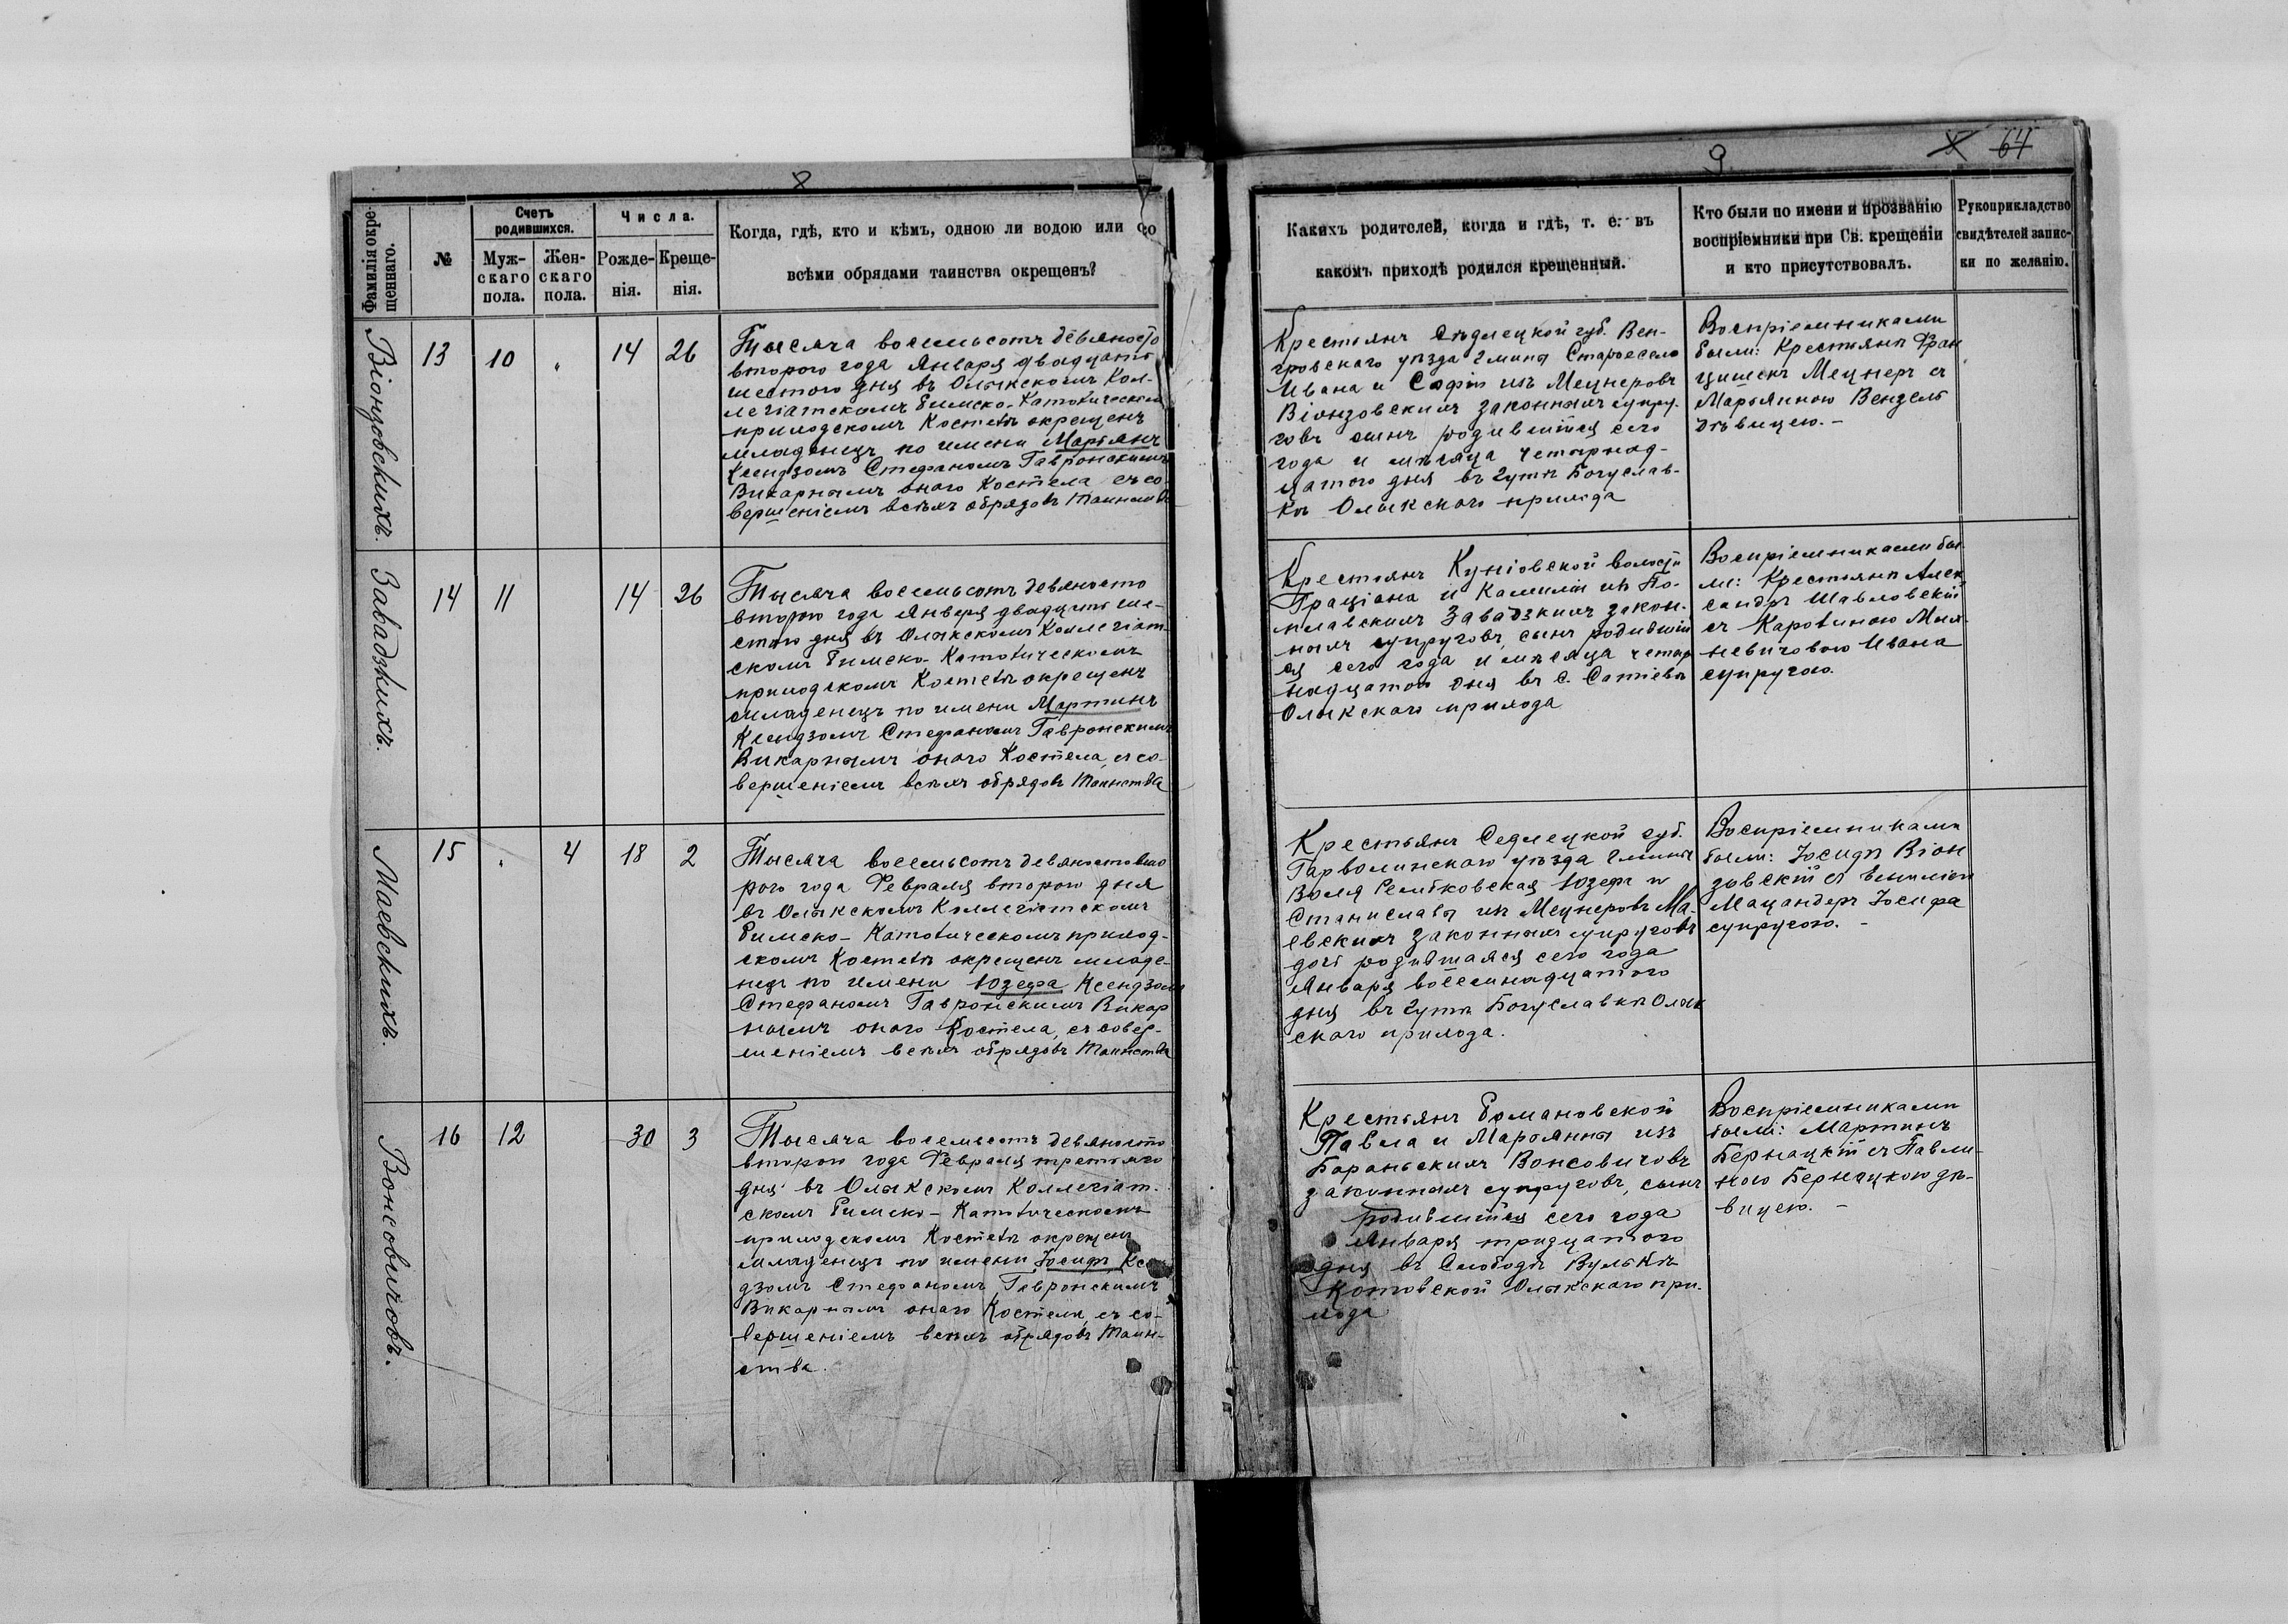 8
Фамилія окре-
щеннаго.
№
Счетъ
родившихся.
Муж-
скаго
пола.
Жен-
скаго
пола.
Числа.
Рожде-
нія.
Креще-
нія.
Когда, гдѣ, кто и кѣмъ, одною ли водою или со
всѣми обрядами таинства окрещенъ?
Віонзовскихъ.
13
10
"
14
26
Тысяча восемьсотъ девяносто
второго года Января двадцать
шестого дня въ Олыкскомъ Кол-
легіатскомъ Римско-Католическомъ
приходскомъ Костелѣ окрещенъ
младенецъ по имени Марьянъ
Ксендзомъ Стефаномъ Гавронскимъ
Викарнымъ оного Костела съ со-
вершеніемъ всѣхъ обрядовъ Таинства
Завадзкихъ.
14
11
14
26
Тысяча восемьсотъ девяносто
второго года Января двадцать ше-
стого дня въ Олыкскомъ Коллегіат-
скомъ Римско-Католическомъ
приходскомъ Костелѣ окрещенъ
младенецъ по имени Мартинъ
Ксендзомъ Стефаномъ Гавронскимъ
Викарнымъ оного Костела, съ со-
вершеніемъ всѣхъ обрядовъ Таинства
Маевскихъ.
15
"
4
18
2
Тысяча восемьсотъ девяносто вто
рого года Февраля второго дня
въ Олыкскомъ Коллегіатскомъ
Римско-Католическомъ приход-
скомъ Костелѣ окрещенъ младе-
нецъ по имени Юзефа Ксендзомъ
Стефаномъ Гавронскимъ Викар
нымъ оного Костела, съ совер-
шеніемъ всѣхъ обрядовъ Таинства
Вонсовичовъ.
16
12
30
3
Тысяча восемьсотъ девяносто
второго года Февраля третьяго
дня въ Олыкскомъ Коллегіат-
скомъ Римско-Католическомъ
приходскомъ Костелѣ окрещенъ
младенецъ по имени Іосифъ Ксен
дзомъ Стефаномъ Гавронскимъ
Викарнымъ оного Костела, съ со-
вершеніемъ всѣхъ обрядовъ Таин-
ства.
9
64
Какихъ родителей, когда и гдѣ, т. е. въ
какомъ приходѣ родился крещенный.
Кто были по имени и прозванію
воспріемники при Св. крещеніи
и кто присутствовалъ.
Рукоприкладство
свидѣтелей запис-
ки по желанію.
Крестьянъ Сѣдлецкой губ. Вен-
гровскаго уѣзда гмины Староесело
Ивана и Софіи изъ Мецнеровъ
Віонзовскихъ законныхъ супру-
говъ сынъ родившійся сего
года и мѣсяца четырнад-
цатого дня въ гутѣ Богуслав-
кѣ Олыкскаго прихода
Воспріемниками
были: Крестьяне Фран
цишекъ Мецнеръ съ
Марьянною Вензель
дѣвицею.-
Крестьянъ Куніовской волости
Граціана и Камиліи изъ По-
плавскихъ Завадзкихъ закон-
ныхъ супруговъ, сынъ родившій
ся сего года и мѣсяца четыр
надцатого дня въ с. Сатіевѣ
Олыкскаго прихода
Воспріемниками бы
ли: Крестьяне Алек
сандръ Шавловскій
съ Каролиною Мих-
невичовою Ивана
супругою.
Крестьянъ Седлецкой губ.
Гарволинскаго уѣзда гмины
Воля Ремтковская Юзефа и
Станиславы изъ Мецнеровъ Ма-
евскихъ законныхъ супруговъ
дочь родившаяся сего года
Января восемнадцатого
дня въ гутѣ Богуславкѣ Олык
скаго прихода.
Воспріемниками
были: Іосифъ Віон
зовскій съ Емиліею
Мацандеръ Іосифа
супругою. -
Крестьянъ Романовской
Павла и Марьянны изъ
Бараньскихъ Вонсовичовъ
законныхъ супруговъ, сынъ
родившійся сего года
Января тридцатого
дня въ Слободѣ Вулькѣ
Котовской Олыкскаго при-
хода
Воспріемниками
были: Мартинъ
Бернацкій съ Павли-
ною Бернацкою дѣ-
вицею. -